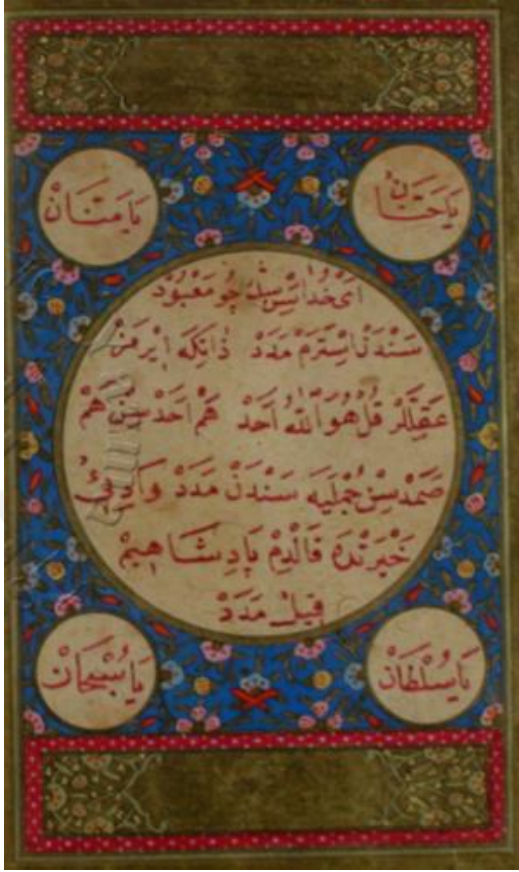 يَا حَنَّانْ
يَا مَنَّانْ
اَىْ خُدَا چُو مَعْبُودْ
سَنْدَنْ اِسْتَرَمْ مَدَدْ ذَانِكَه اِيرْمَزْ
عَقِلَّلَرْ قُلْ هُوَ اللّٰهُ اَحَدْ هَمْ اَحَدْ سِنْ هَمْ
صَمَدْ سِنْ جُمْلَيَه سَنْدَنْ مَدَدْ وَادِئِ
حَيْرَتْدَه قَالْدِمْ پَادِشَاهِيمْ
قِيلْ مَدَدْ
يَا سُلْطَانْ
يَا سُبْحَانْ